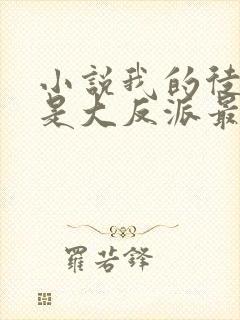 小説我的徒
是大反派最
羅若鋒